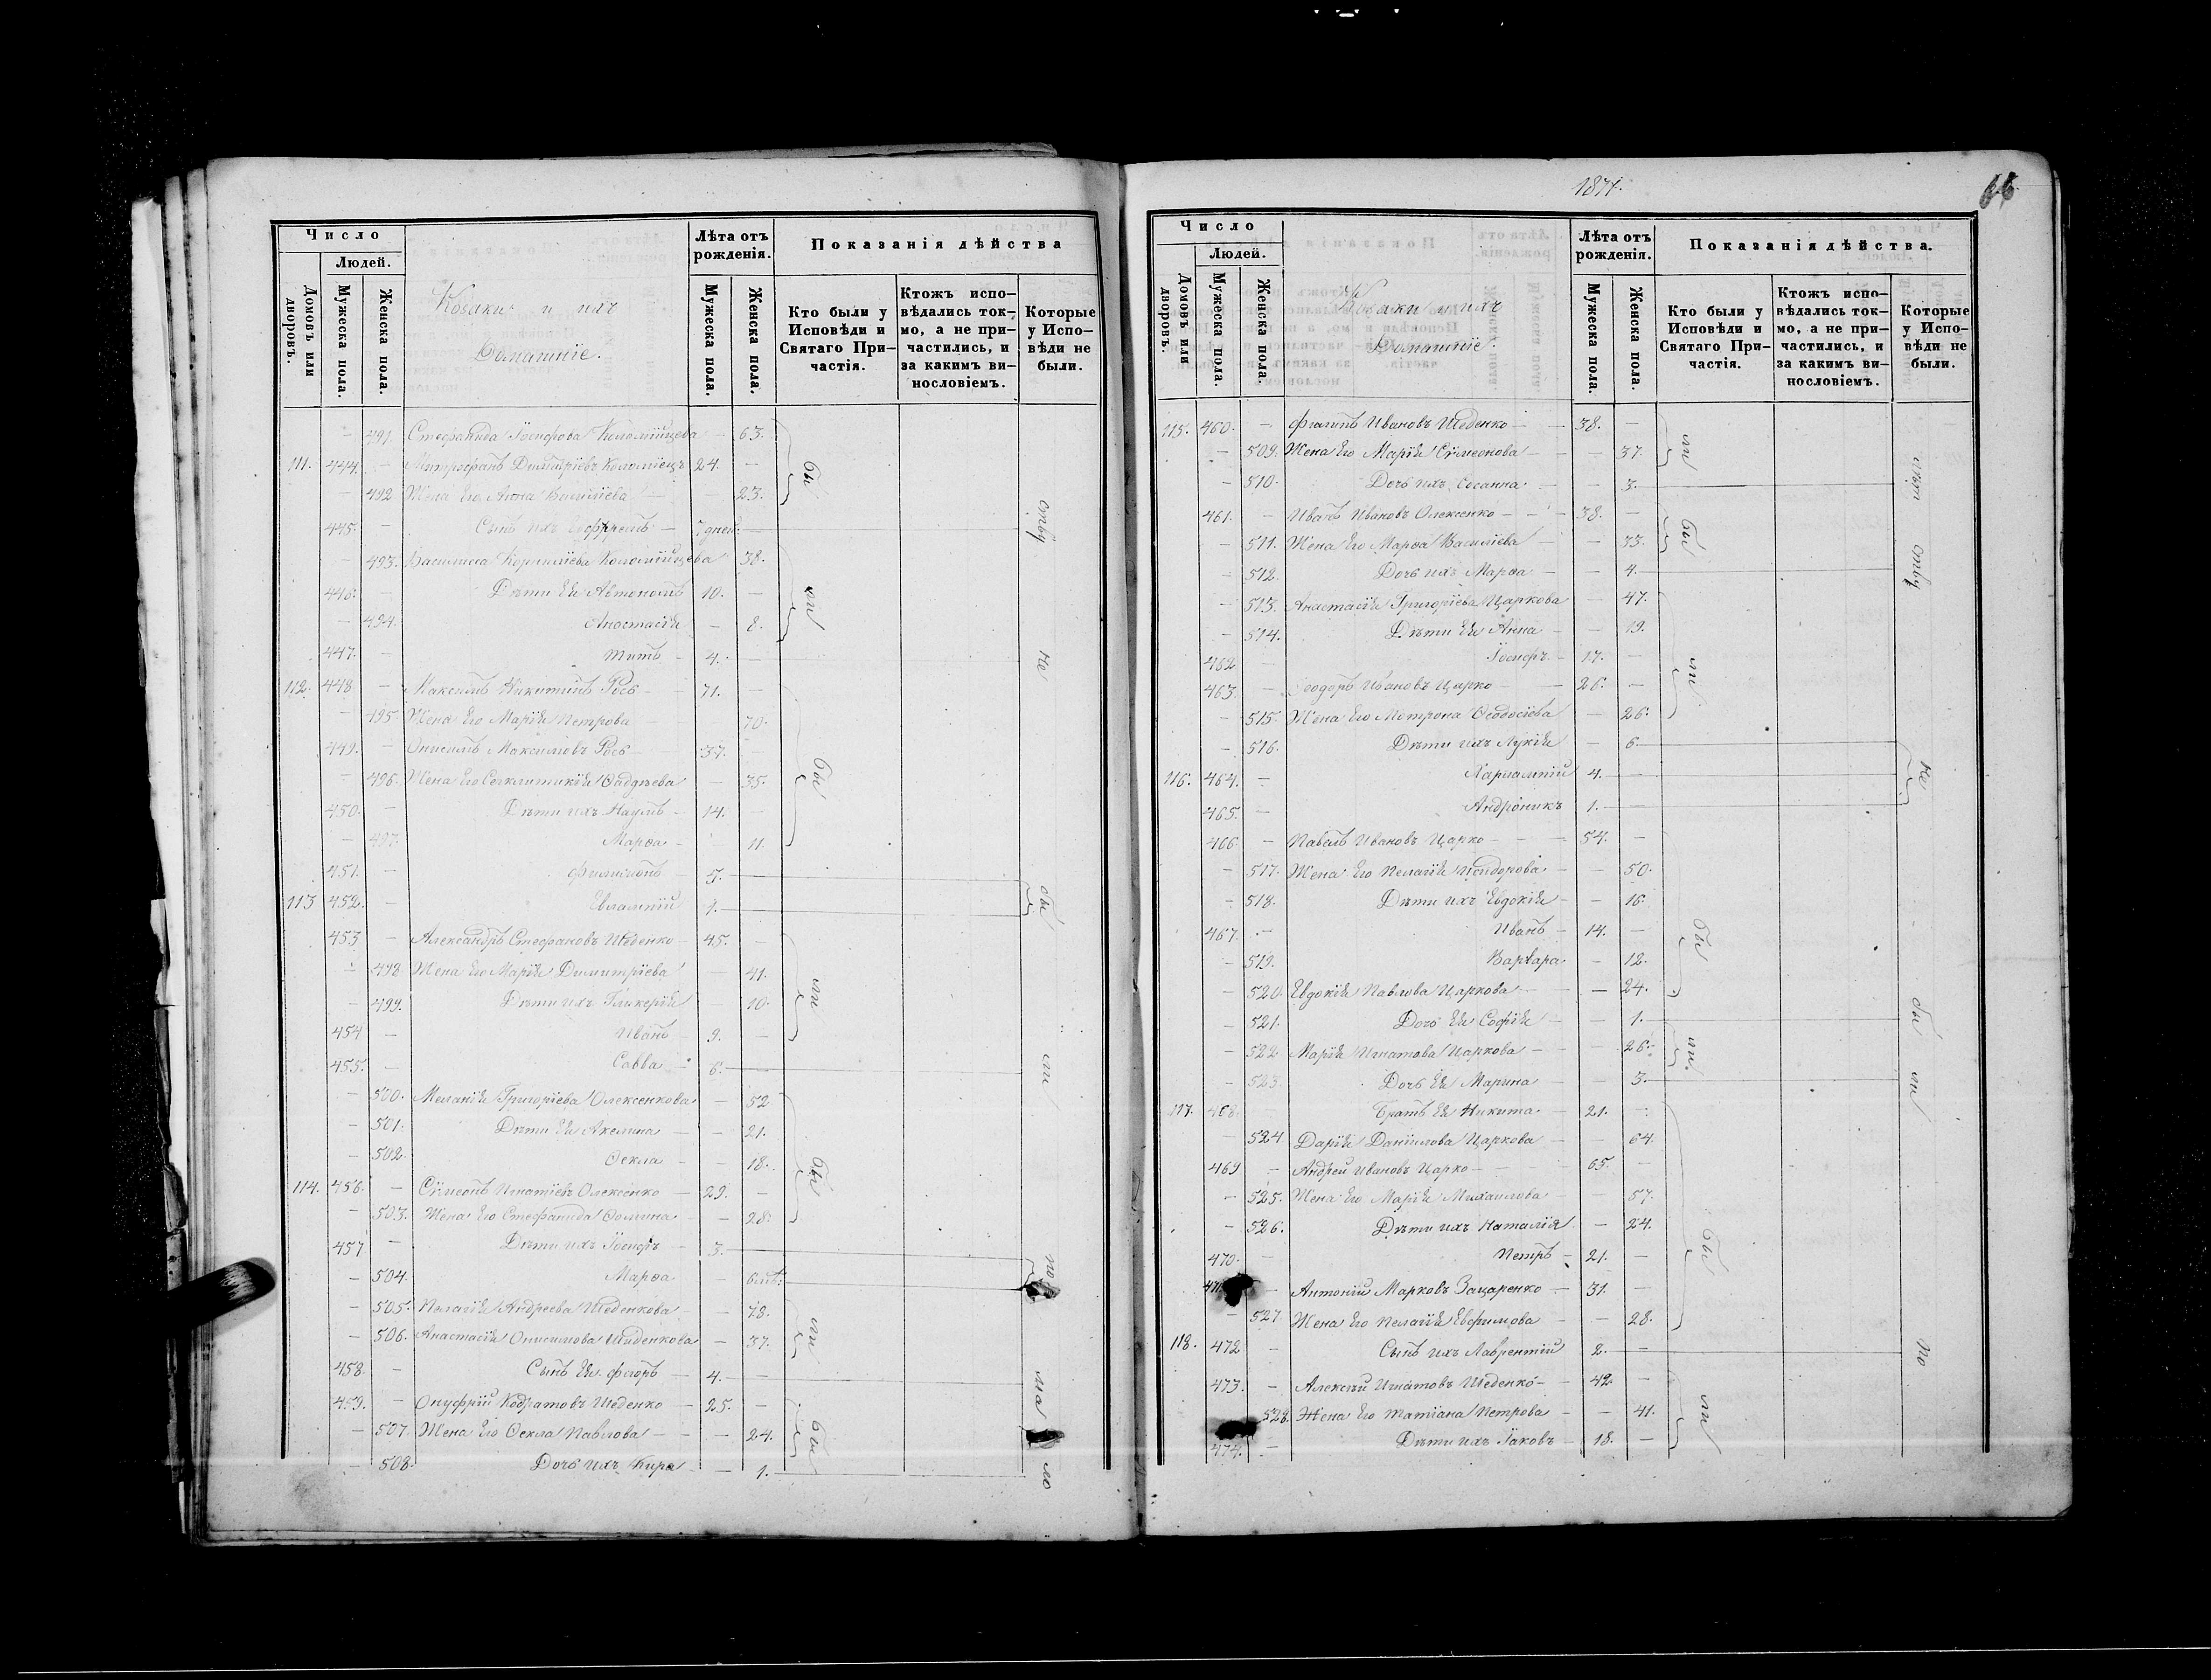 Число
Людей.
Домовъ или дворовъ.
Мужеска пола.
Женска пола.
Козаки и ихъ
Домашніе.
Лѣта отъ рожденія.
Мужеска пола.
Женска пола.
Показанія дѣйства
Кто были у Исповѣди и Святаго При-частія.
Ктожъ испо-вѣдались ток-мо, а не при-частились, и за какимъ ви-нословіемъ.
Которые у Испо-вѣди не были.
— 491. Стефанида Іосифова Коломійцева — 63.
111. 444. — Митрофанъ Димитріевъ Коломіецъ 24. —
— 492 Жена Его Анна Василіева — 23.
445. — Сынъ ихъ Ефремъ — 7 дней.
— 493. Василисса Корниліева Коломійцева 38.
446. — Дѣти Ея Автономъ 10. —
— 494. Анастасія — 8.
447. — Титъ — 4. —
112. 448 — Максимъ Никитинъ Рось — 71. —
— 495 Жена Его Марія Петрова 70.
449. — Онисимъ Максимовъ Рось — 37. —
— 496. Жена Его Сигклитикія Фаддѣева — 35.
450. — Дѣти ихъ Наумъ — 14. —
— 497. Марѳа — 11.
451. — Филимонъ — 5.
113 452. — Евлампій 1.
453 — Александръ Стефановъ Шеденко — 45. —
— 498 Жена Его Марія Димитріева — 41.
— 499. Дѣти ихъ Гликерія — 10.
454 — Иванъ — 9. —
455. — Савва — 6.
— 500. Меланія Григоріева Олексенкова — 52
— 501. Дѣти Ея Акелина — — 21.
— 502. Ѳекла — — 18.
114. 456. — Сѵмеонъ Игнатіевъ Олексенко — 29. —
— 503. Жена Его Стефанида Ѳомина — — 28.
457 — Дѣти ихъ Іосифъ — 3.
— 504. Марѳа — 6 мѣс.
— 505. Пелагія Андреева Шеденкова — — 78.
— 506. Анастасія Онисимова Шиденкова — 37.
458. — Сынъ Ея Флоръ — 4. —
459. — Онуфрій Кодратовъ Шеденко — 25. —
— 507. Жена Его Ѳекла Павлова — — — 24.
— 508. Дочь ихъ Кира — — 1.
бы
ли
бы
ли
бы
ли
бы
ли
1871.
66
Число
Людей.
Домовъ или дворовъ.
Мужеска пола.
Женска пола.
Козаки и ихъ
Домашніе.
Лѣта отъ рожденія.
Мужеска пола.
Женска пола.
Показанія дѣйства.
Кто были у Исповѣди и Святаго При-частія.
Ктожъ испо-вѣдались ток-мо, а не при-частились, и за какимъ ви-нословіемъ.
Которые у Испо-вѣди не были.
115. 460. — Филипъ Ивановъ Шеденко — — 38. —
— 509. Жена Его Марія Сѵмеонова — — 37.
— 510. Дочь ихъ Сосанна — — 3.
461. — Иванъ Ивановъ Олексенко — — — 38. —
— 511. Жена Его Марѳа Василіева — 33.
— 512. Дочь ихъ Марѳа — — 4.
— 513. Анастасія Григоріева Царкова — 47.
— 514. Дѣти Ея Анна — — 19.
462 — Іосифъ — 17. —
463. — Ѳеодоръ Ивановъ Царко — 26. —
— 515. Жена Его Мотрона Ѳеодосіева — 26.
— 516. Дѣти ихъ Лукія — 6.
116. 464. — Харлампій 4. —
465. — Андроникъ 1. —
466. — Павелъ Ивановъ Царко — — — 54. —
— 517. Жена Его Пелагія Исидорова — — 50.
— 518. Дѣти ихъ Евдокія — — 16.
467. — Иванъ — 14. —
— 519. Варвара — 12.
— 520. Евдокія Павлова Царкова — — 24.
— 521. Дочь Ея Софія — — 1.
— 522 Марія Игнатова Царкова — — 26.
— 523. Дочь Ея Марина — — 3.
117. 468. — Братъ Ея Никита — 21. —
— 524 Дарія Даніилова Царкова — — 64.
469 — Андрей Ивановъ Царко — — 65. —
— 525. Жена Его Марія Михаилова — — 57.
— 526. Дѣти ихъ Наталія — 24.
470. — Петръ — 21. —
471 — Антоній Марковъ Захаренко — 31. —
— 527 Жена Его Пелагія Евфимова — — 28.
118. 472 — Сынъ ихъ Лаврентій 2. —
473. — Алексѣй Игнатовъ Шеденко — 42. —
528. Жена Его Татіана Петрова — — 41.
474. — Дѣти ихъ Іаковъ — 18. —
ли
бы
ли
бы
ли.
бы
ли